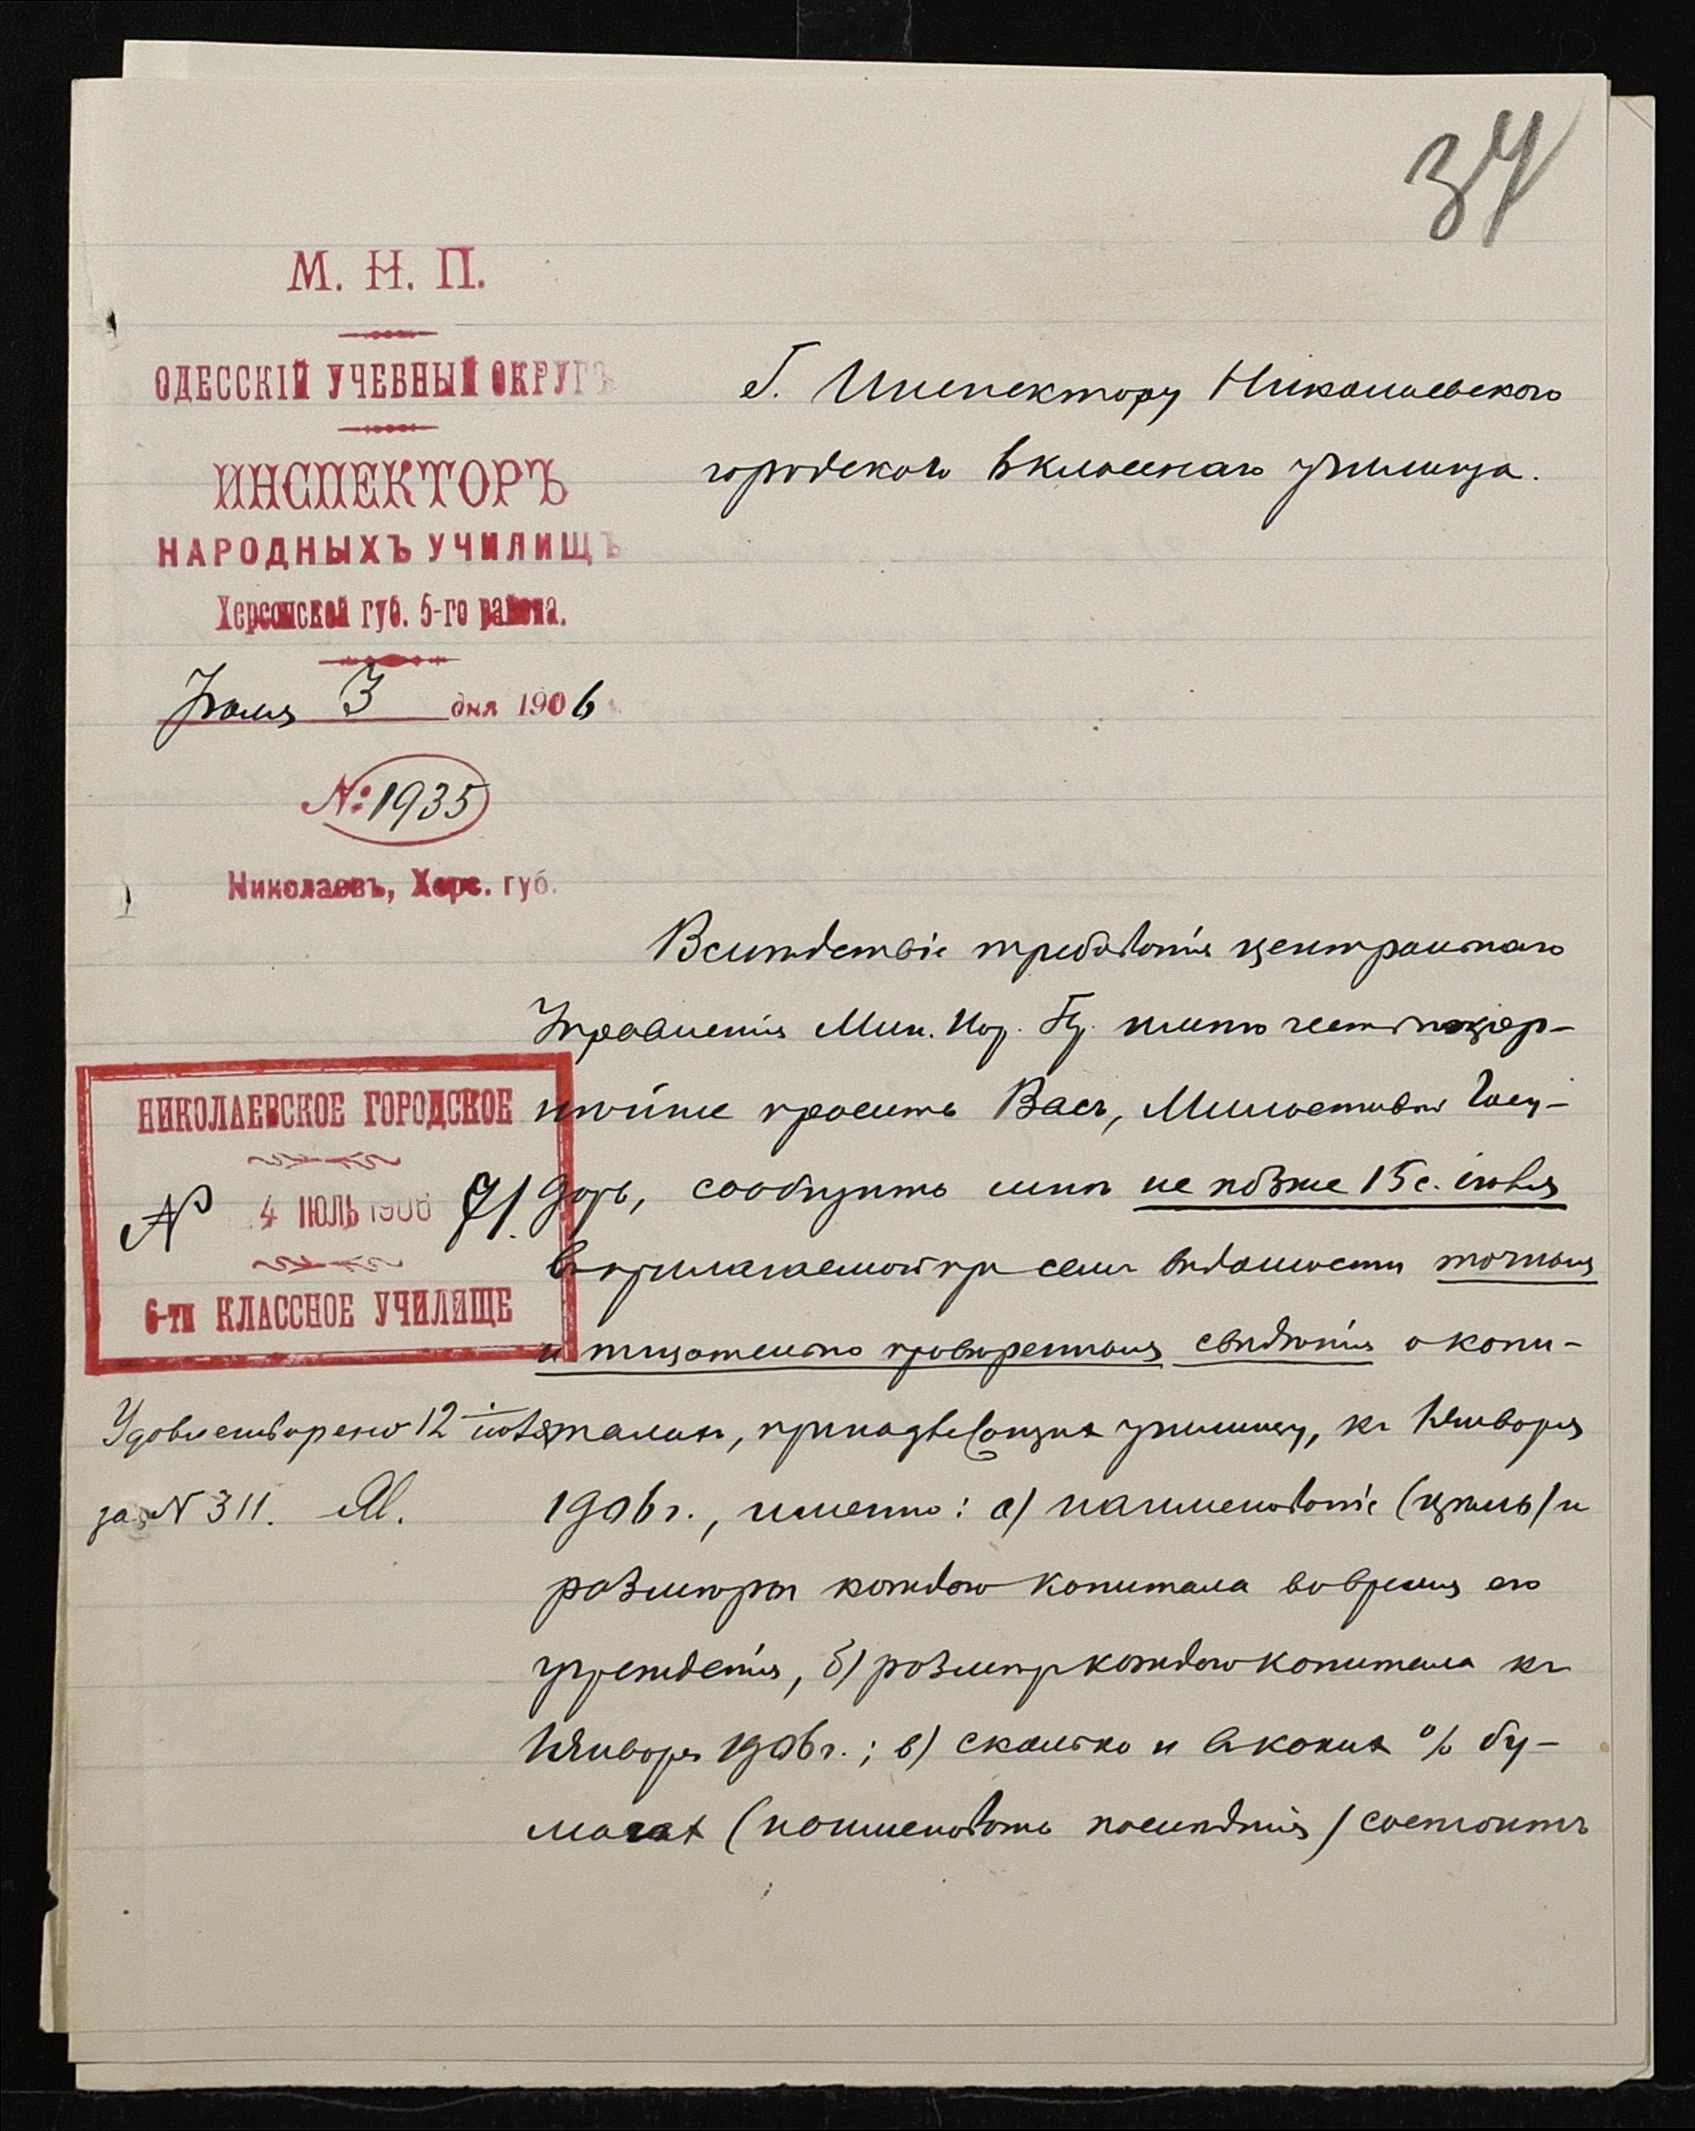 37
М. Н. П.
ОДЕССКІЙ УЧЕБНЫЙ ОКРУГЪ
ИНСПЕКТОРЪ
НАРОДНЫХЪ УЧИЛИЩЪ
Херсонской губ. 5-го района.
Іюля 3 дня 1906
№ 1935
Николаевъ, Херс. губ.
Г. Инспектору Николаевскаго
городского 6 класснаго училища.
Вслѣдствіе требованія центральнаго
Управленія Мин. Нар. Пр. имѣю честь покор-
нѣйше просить Васъ, Милостивый Госу-
дарь, сообщить мнѣ не позже 15 с. іюля
въ прилагаемой при семъ вѣдомости точныя
и тщательно провѣренныя свѣдѣнія о капи-
талахъ, принадлежащихъ училищу, къ 1 Января
1906 г., именно: а) наименованіе (цѣль) и
размѣры каждаго капитала во время его
учрежденія, б) размѣръ каждаго капитала къ
1 Января 1906 г.; в) сколько и въ какихъ % бу-
магахъ (наименовать послѣднія) состоитъ
НИКОЛАЕВСКОЕ ГОРОДСКОЕ
№ 4 ІЮЛЬ 1906 71.
6-ти КЛАССНОЕ УЧИЛИЩЕ
Удовлетворено 12 іюля
за № 311.